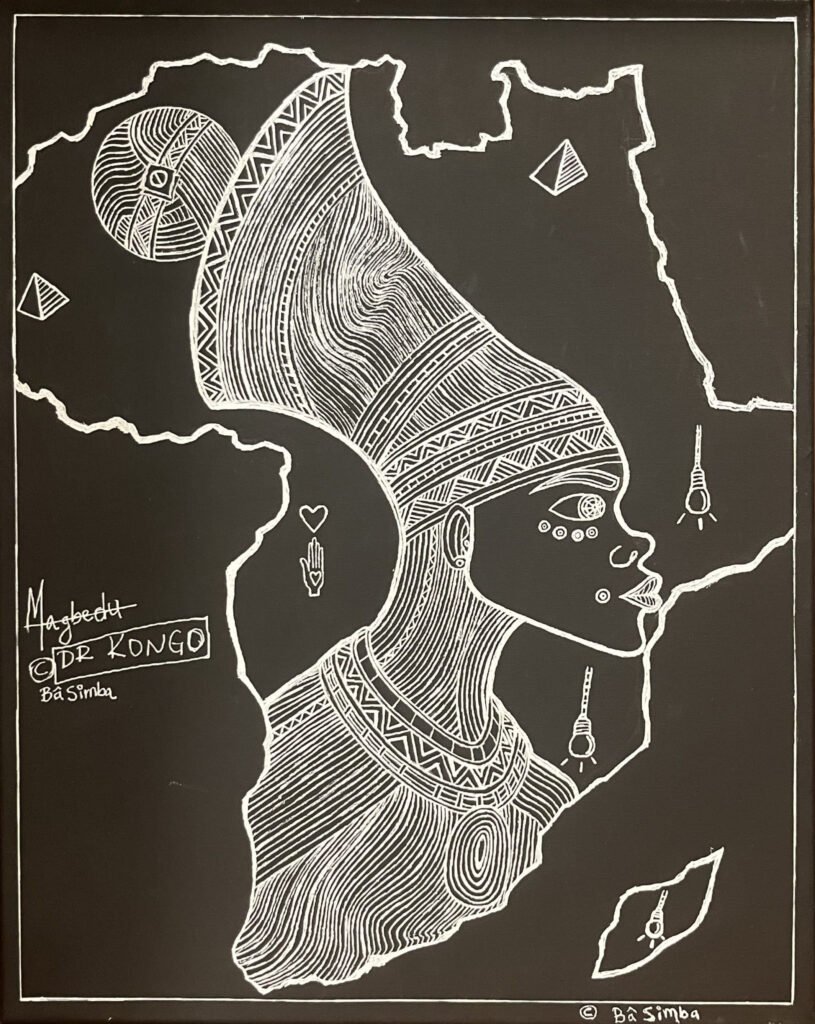 Magbedu
© DR KONGO
Bâ Simba
© Bâ Simba